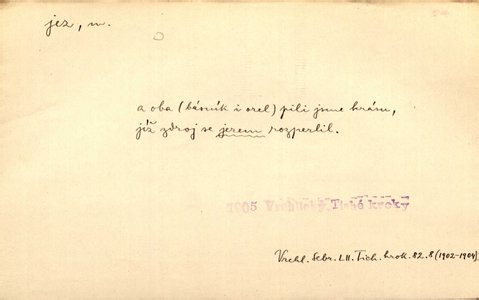 jez, m.
a oba (básník i orel) pili jsme krásu,
jíž zdroj se jezem rozperlil.
1905 Vrchlický, Tiché kroky
Vrchl. Sebr. LII. Tich. krok. 82. 8 (1902-1904)